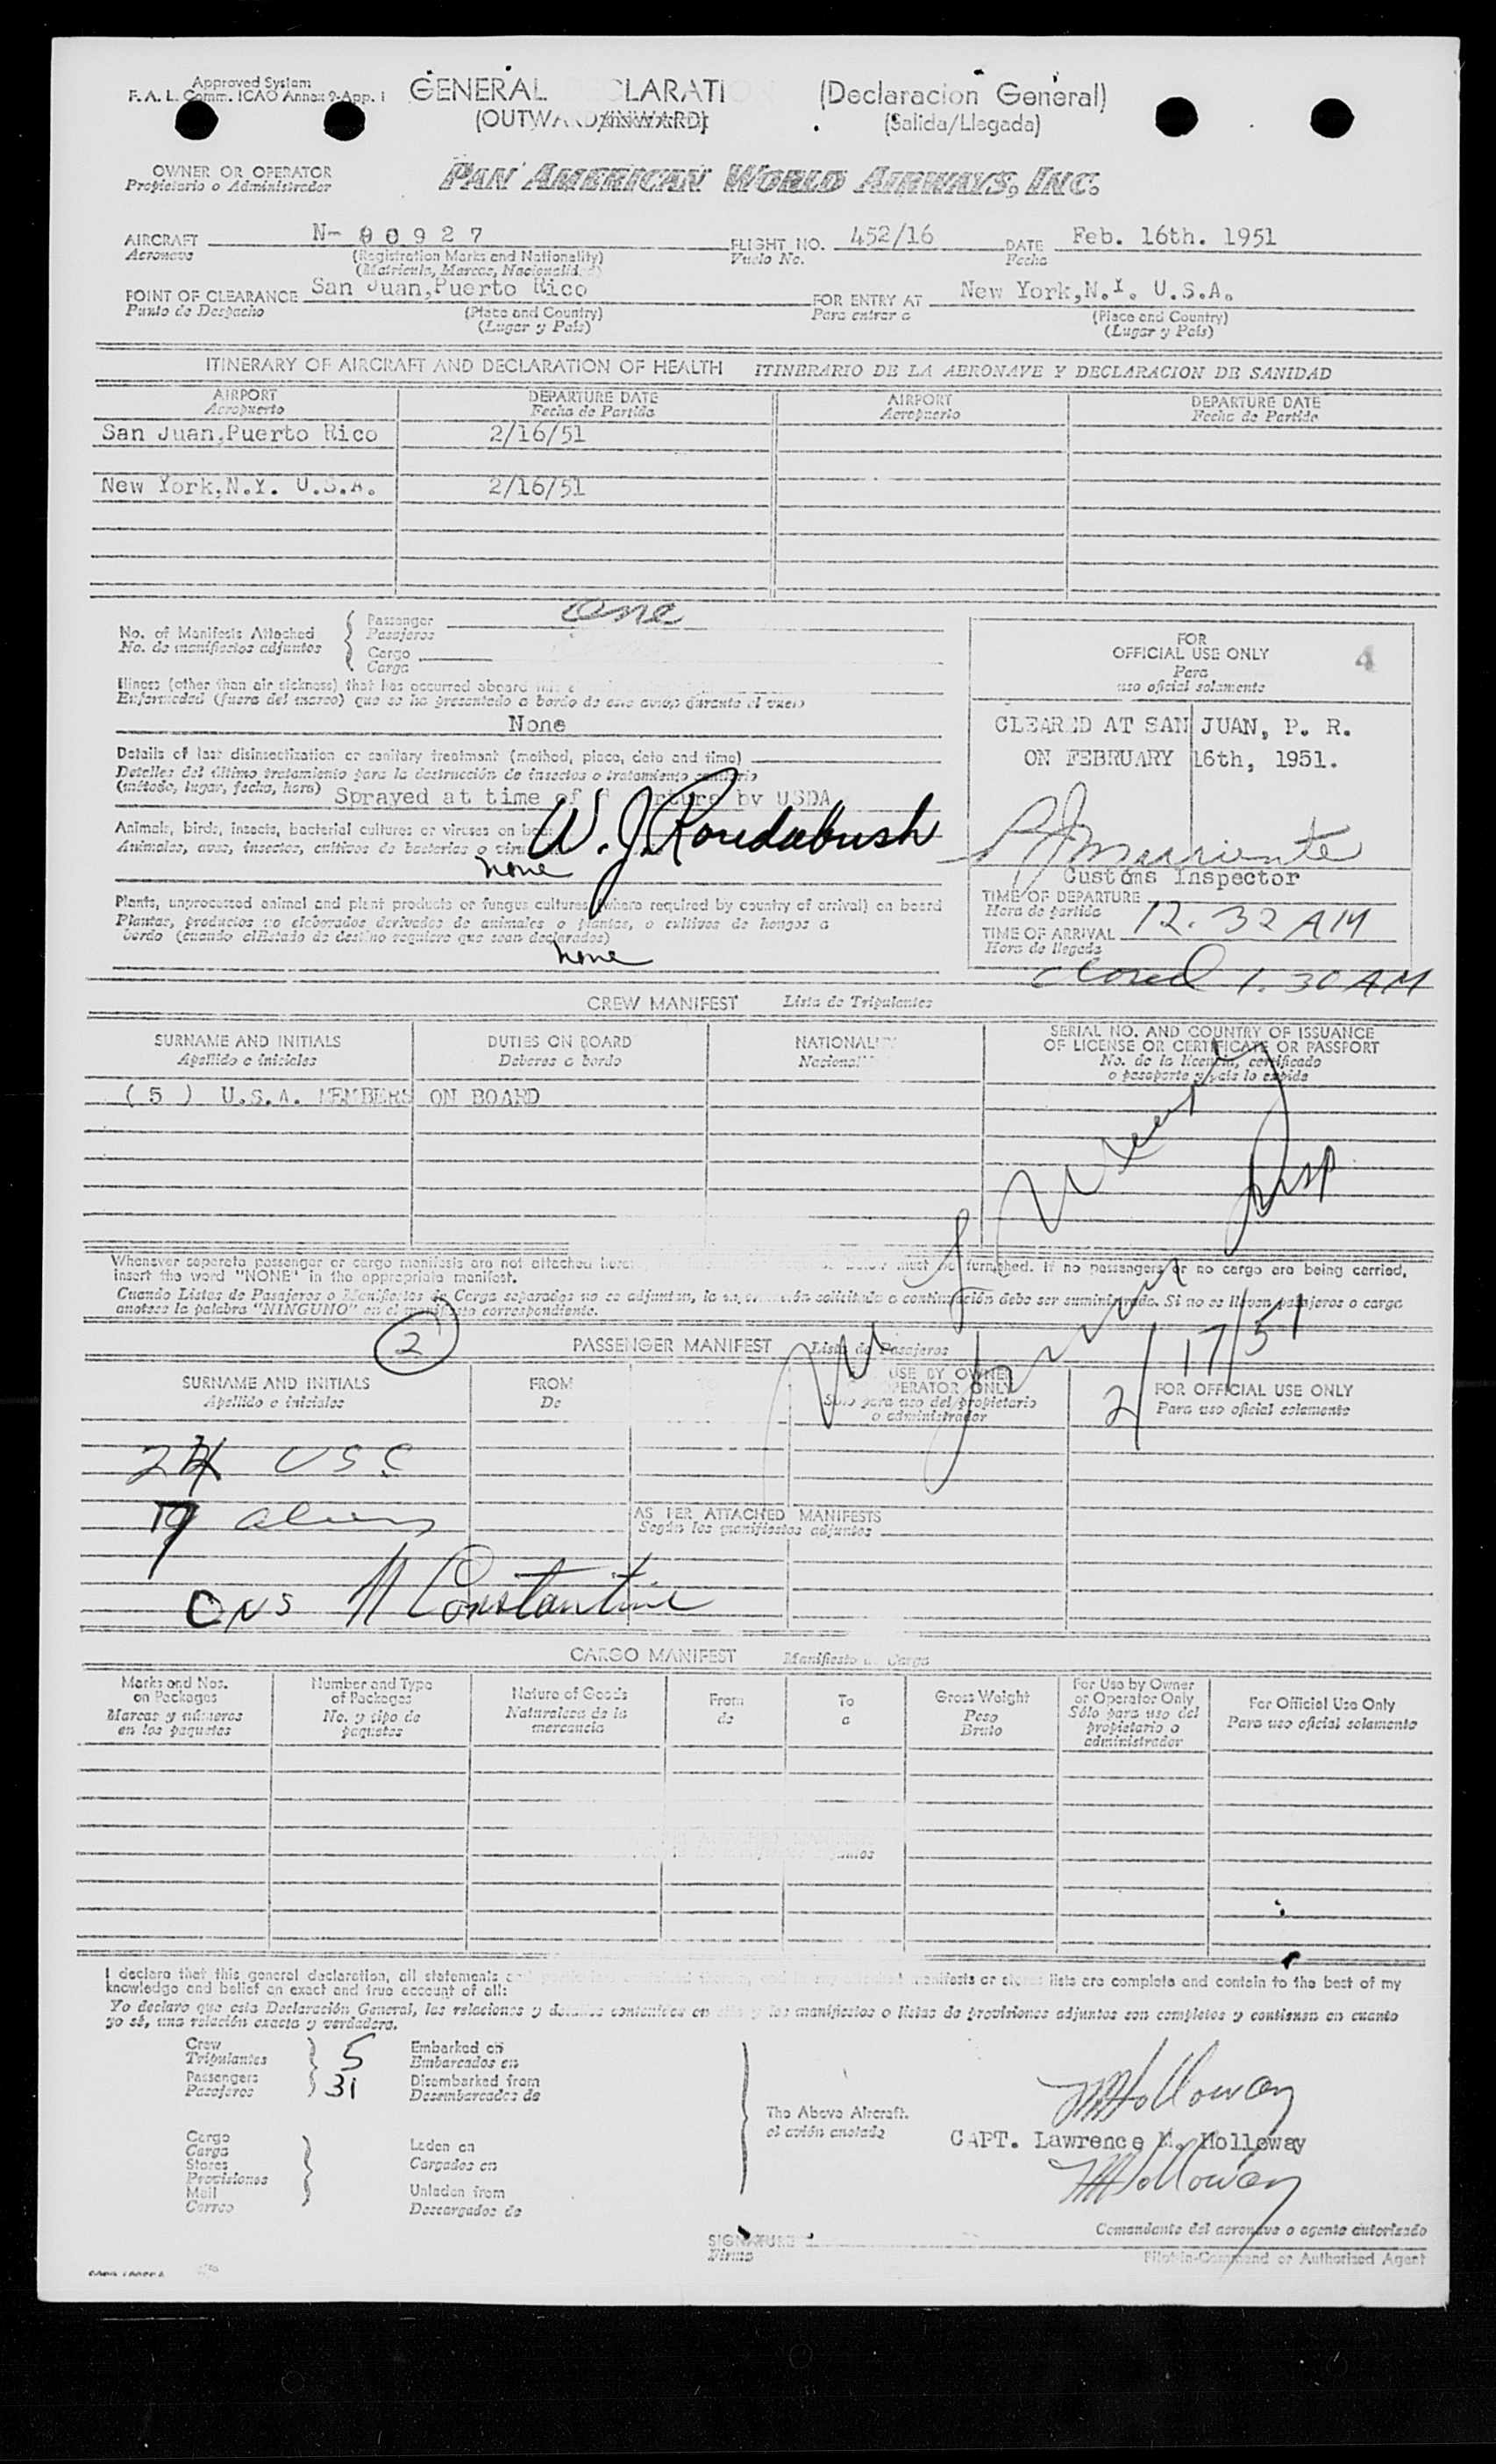 Approved System
F. A. L. Comm. ICAO Annex 9-App. 1
GENERAL CLARATI (Declaracion General)
(OUTWARD/INWARD) (Salida/Llegada)
OWNER OR OPERATOR
Propietario o Administrador
PAN AMERICAN WORLD AIRWAYS, INC.
AIRCRAFT N- 90927 FLIGHT NO. 452/16 DATE Feb. 16th. 1951
Aeronave (Registration Marks and Nationality) Vuelo No. Fecha
(Matricula, Marcas, Nacionalid
POINT OF CLEARANCE San Juan,Puerto Rico FOR ENTRY AT New York,N.Y. U.S.A.
Punto de Despacho (Place and Country) Para entrar a (Place and Country)
(Lugar y País) (Lugar y País)
ITINERARY OF AIRCRAFT AND DECLARATION OF HEALTH ITINERARIO DE LA AERONAVE Y DECLARACION DE SANIDAD
AIRPORT DEPARTURE DATE AIRPORT DEPARTURE DATE
Aeropuerto Fecha de Partida Aeropuerto Fecha de Partida
San Juan,Puerto Rico 2/16/51
New York,N.Y. U.S.A. 2/16/51
No. of Manifests Attached
No. de manifiestos adjuntos
Passenger one
Pasajeros
Cargo
Carga
Illness (other than air sickness) that has occurred aboard
Enfermedad (fuera del mareo) que se ha presentado a bordo de este avion durante el vuelo
None
Details of last disinsectization or sanitary treatment (method, place, date and time)
Detalles del último tratamiento para la destrucción de insectos o tratamiento sanitario
(método, lugar, fecha, hora) Sprayed at time of rture by USDA
W. J. Roudabush
Animals, birds, insects, bacterial cultures or viruses on
Animales, aves, insectos, cultivos de bacterias o
none
Plants, unprocessed animal and plant products or fungus cultures (where required by country of arrival) on board
Plantas, productos no elaborados derivados de animales o plantas, o cultivos de hongos a
bordo (cuando elEstado de destino requiere que sean declarados)
none
FOR
OFFICIAL USE ONLY 4
Para
uso oficial solamente
CLEARED AT SAN JUAN, P. R.
ON FEBRUARY 16th, 1951.
Customs Inspector
TIME OF DEPARTURE
Hora de partida 12.32 AM
TIME OF ARRIVAL
Hora de llegada
closed 1.30 AM
CREW MANIFEST Lista de Tripulantes
SURNAME AND INITIALS DUTIES ON BOARD NATIONALI SERIAL NO. AND COUNTRY OF ISSUANCE
Apellido e iniciales Deberes a bordo Nacional OF LICENSE OR CERTIFICATE OR PASSPORT
No. de la licencia, certificado
o pasaporte y país lo expide
( 5 ) U.S.A. MEMBERS ON BOARD
Insp
Whenever separate passenger or cargo manifests are not attached must be furnished. If no passengers or no cargo are being carried,
insert the word "NONE" in the appropriate manifest.
Cuando Listas de Pasajeros o Manifiestos de Carga separados no se adjuntan, la solicitada a continuación debe ser suministrada. Si no se llevan pasajeros o carga
anotese la palabra "NINGUNO" en el manifiesto correspondiente.
2/17/51
2 PASSENGER MANIFEST Lista de Pasajeros
SURNAME AND INITIALS FROM USE BY OWNER FOR OFFICIAL USE ONLY
Apellido e iniciales De OPERATOR ONLY Para uso oficial solamente
Sólo para uso del propietario
o administrador
USC
aliens
AS PER ATTACHED MANIFESTS
Según los manifiestos adjuntos
Constantine
CARGO MANIFEST Manifiesto de Carga
Marks and Nos. on Packages
Marcas y números en los paquetes
Number and Type of Packages
No. y tipo de paquetes
Nature of Goods
Naturaleza de la mercancia
From
de
To
a
Gross Weight
Peso Bruto
For Use by Owner or Operator Only
Sólo para uso del propietario o administrador
For Official Use Only
Para uso oficial solamente
I declare that this general declaration, all statements manifests or stores lists are complete and contain to the best of my
knowledge and belief an exact and true account of all:
Yo declaro que esta Declaración General, las relaciones y detalles contenidos en y los manifiestos o listas de provisiones adjuntos son completos y contienen en cuanto
yo sé, una relación exacta y verdadera.
Crew 5 Embarked on
Tripulantes Embarcados en
Passengers 31 Disembarked from
Pasajeros Desembarcados de
The Above Aircraft.
el avión anotado
Cargo
Carga Laden on
Stores Cargados en
Provisiones
Mail Unladen from
Correo Descargados de
Holloway
CAPT. Lawrence M. Holloway
Holloway
SIGNATURE
Firma
Comandante del aeronave o agente autorizado
Pilot-in-Command or Authorized Agent